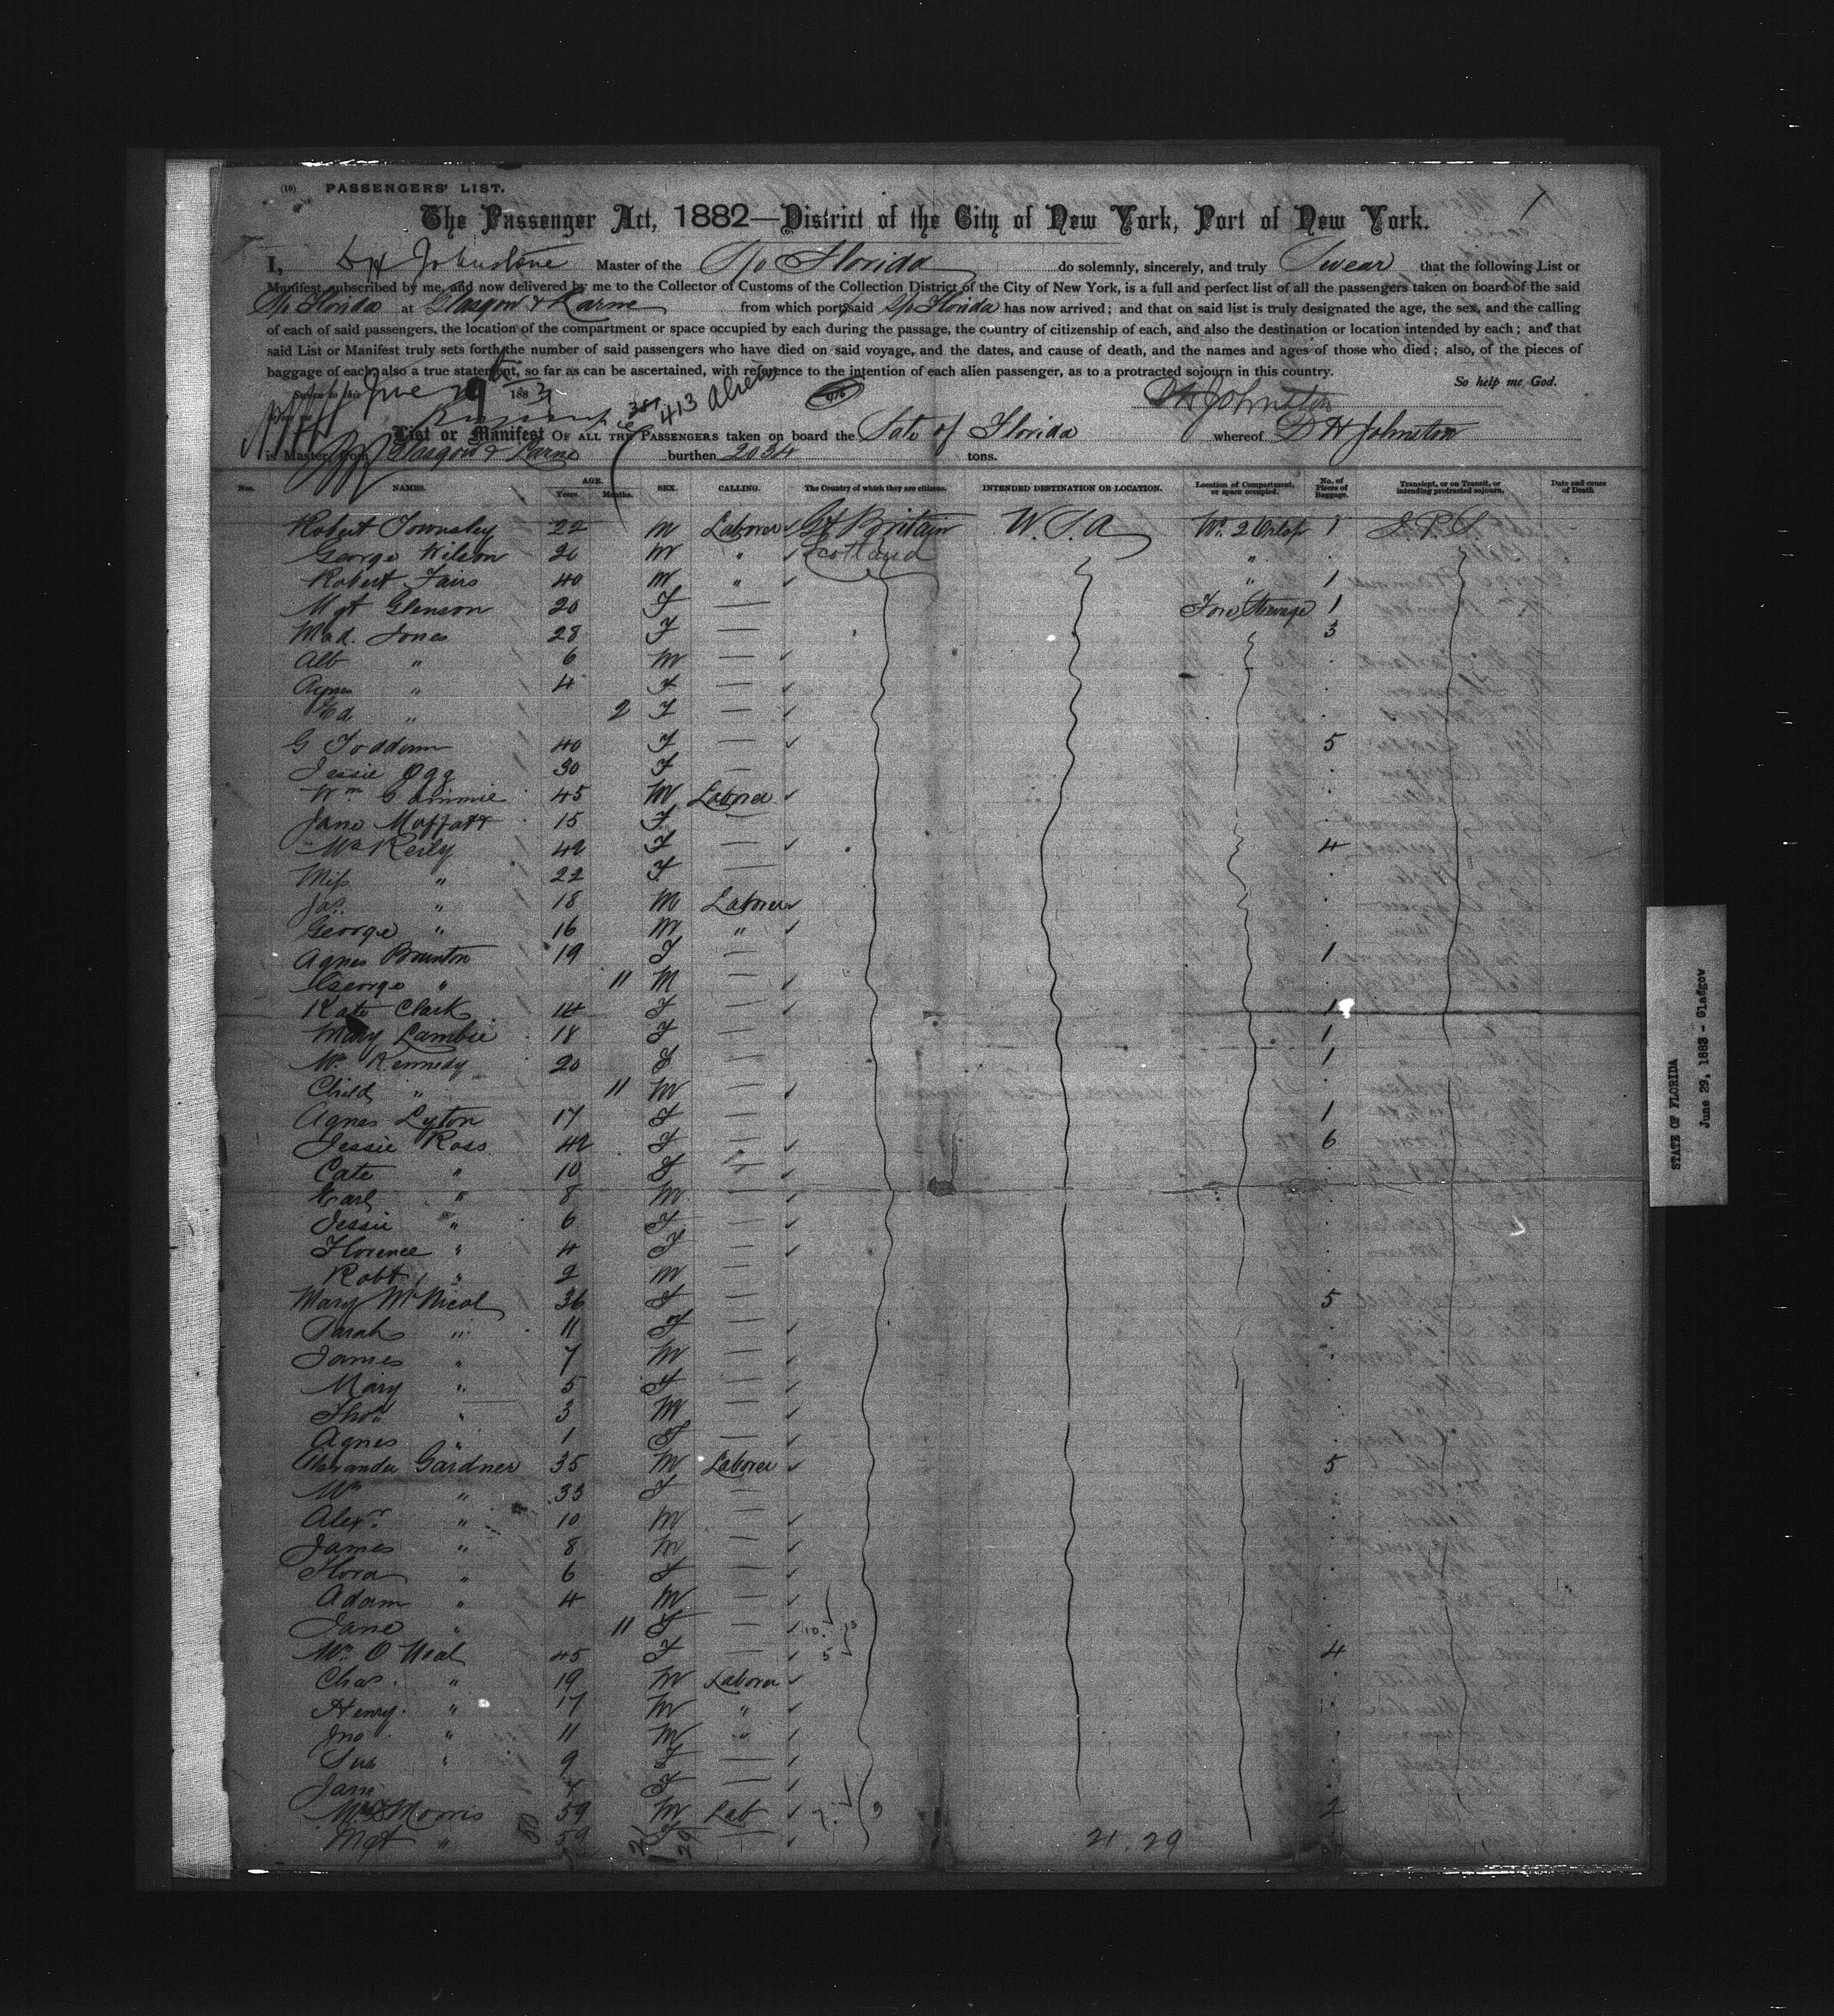 (18) PASSENGERS' LIST. 1
The Passenger Act, 1882—District of the City of New York, Port of New York.
I, D H Johnstone Master of the S/s Florida do solemnly, sincerely, and truly Swear that the following List or
Manifest, subscribed by me, and now delivered by me to the Collector of Customs of the Collection District of the City of New York, is a full and perfect list of all the passengers taken on board of the said
S/s Florida at Glasgow & Larne from which port, said S/s Florida has now arrived; and that on said list is truly designated the age, the sex, and the calling
of each of said passengers, the location of the compartment or space occupied by each during the passage, the country of citizenship of each, and also the destination or location intended by each; and that
said List or Manifest truly sets forth the number of said passengers who have died on said voyage, and the dates, and cause of death, and the names and ages of those who died; also, of the pieces of
baggage of each; also a true statement, so far as can be ascertained, with reference to the intention of each alien passenger, as to a protracted sojourn in this country.
So help me God.
Sworn to this June 29th 1883
413 Aliens
DH Johnston
List or Manifest OF ALL THE PASSENGERS taken on board the State of Florida whereof D H Johnston
is Master, from Glasgow & Larne burthen 2034 tons.
Nos. NAMES. AGE. Years. Months. SEX. CALLING. The Country of which they are citizens. INTENDED DESTINATION OR LOCATION. Location of Compartment, or space occupied. No. of Pieces of Baggage. Transient, or on Transit, or intending protracted sojourn. Date and cause of Death
Robert Townsley 22 M Laborer Gt Britain U.S.A No. 2 Orlop 1 I.P.S.
George Wilson 20 M " Scotland "
Robert Fairs 40 M " " 1
Mgt Glenson 20 F — Fore Steerage 1
Mad. Jones 28 F — 3
Alb " 6 M —
Agnes " 4 F —
Ed " 2 F —
G Toddam 40 F — 5
Jessie Ogg 30 F —
Wm Cammie 45 M Laborer
Jane Moffatt 15 F —
Mrs Reily 42 F — 4
Miss " 22 F —
Jas. " 18 M Laborer
George " 16 M "
Agnes Brunton 19 F — 1
George " 11 M —
Kate Clark 14 F — 1
Mary Lambie 18 F — 1
Mrs Kennedy 20 F — 1
Child " 11 M —
Agnes Lyton 17 F — 1
Jessie Ross 42 F — 6
Cate " 10 F —
Earl " 8 M —
Jessie " 6 F —
Florence " 4 F —
Robt " 2 M —
Mary McNicol 36 F — 5
Sarah " 11 F —
James " 7 M —
Mary " 5 F —
Thos " 3 M —
Agnes " 1 F —
Alexander Gardner 35 M Laborer 5
Mrs " 33 F —
Alexr. " 10 M —
James " 8 M —
Flora " 6 F —
Adam " 4 M —
Jane " 11 F —
Mrs O Neal 45 F — 4
Chas. " 19 M Laborer
Henry. " 17 M "
Jno " 11 M "
Sus " 9 F —
Jane F —
Morris 59 M Lab 2
Mgt " 59 F —
50 21 29
21.29
STATE OF FLORIDA
June 29, 1883 - Glasgow